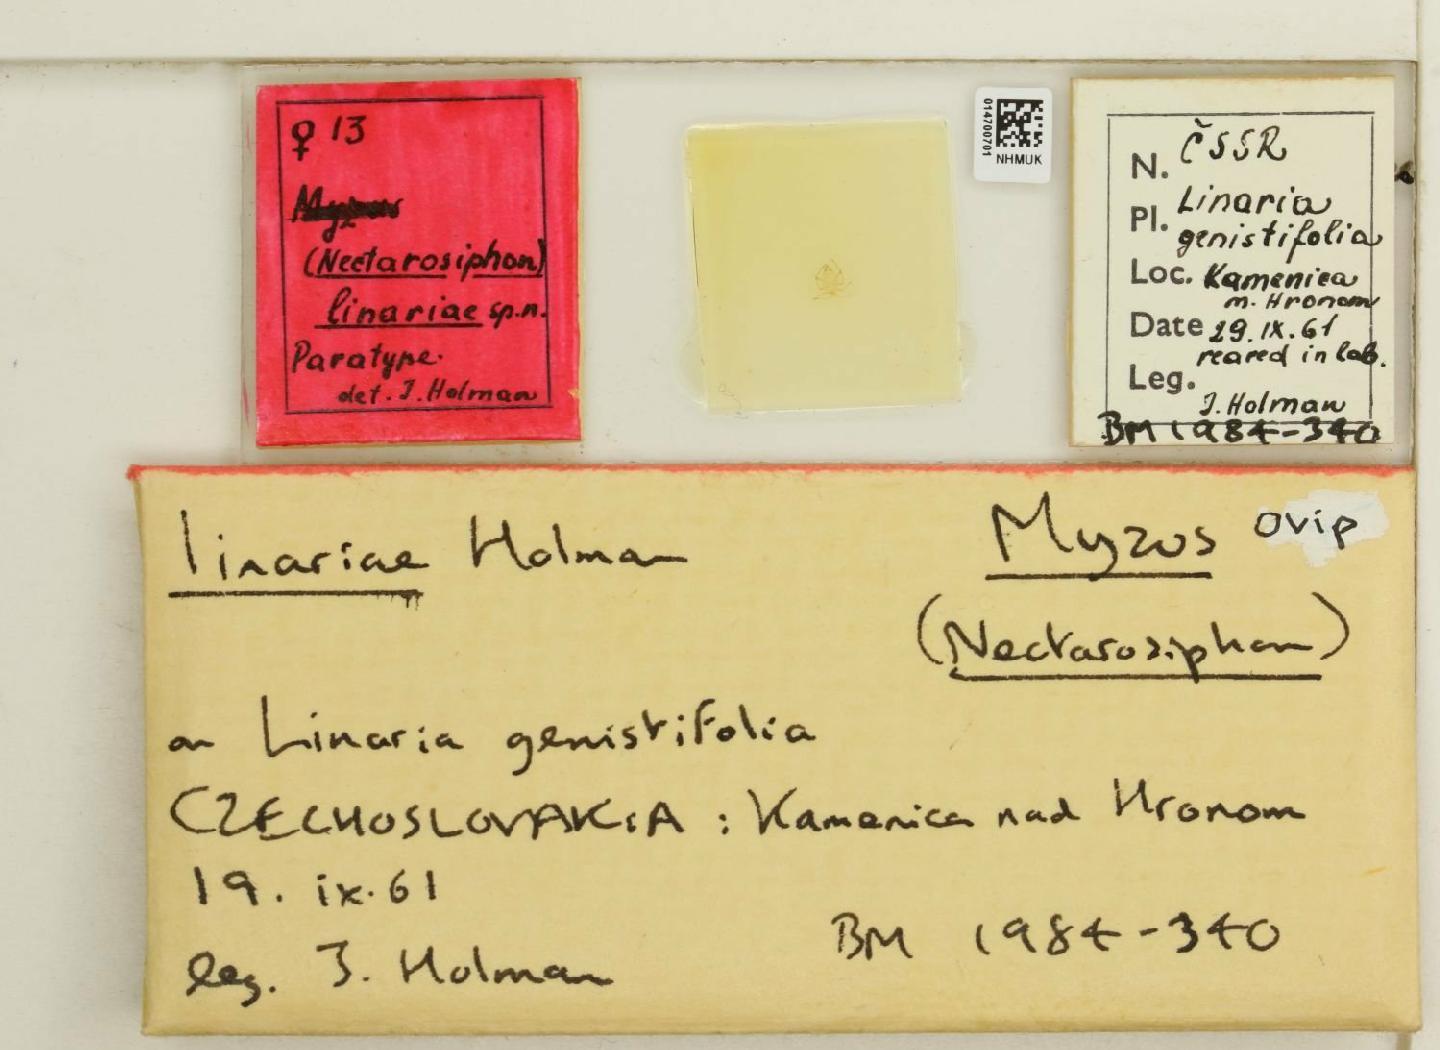 ♀ 13
Myzus
(Nectarosiphon)
linariae sp.n.
Paratype.
det. J. Holman
014700701
NHMUK
N. ČSSR
Pl. Linaria
genistifolia
Loc. Kamenica
n. Hronom
Date 29.IX.61
reared in lab.
Leg.
J. Holman
BM 1984-340
linariae Holman
Myzus ovip
(Nectarosiphon)
on Linaria genistifolia
CZECHOSLOVAKIA : Kamenica nad Hronom
19. ix. 61
leg. J. Holman
BM 1984-340